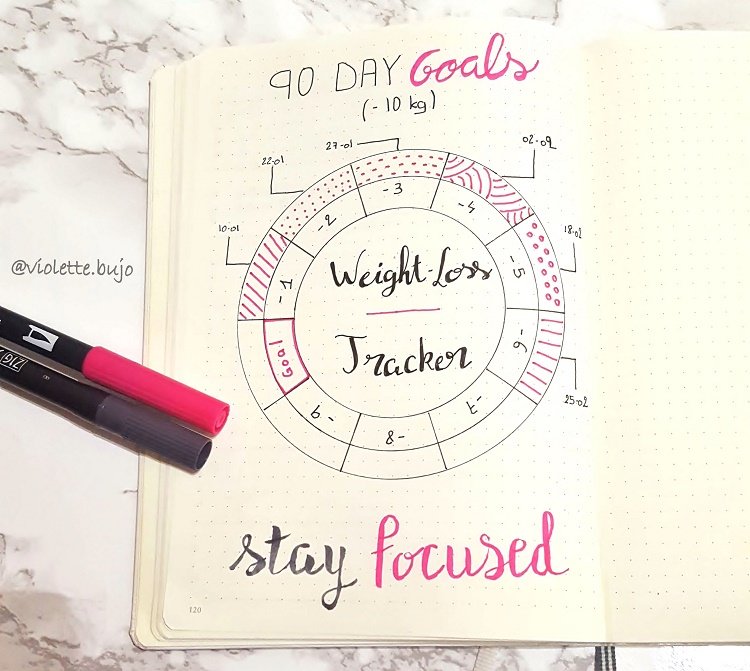 90 DAY Goals
(- 10 kg)
27-01
02-02
22-01
10-01
18-02
25-02
-1
-2
-3
-4
-5
-6
-7
-8
-9
Goal
Weight-Loss
Tracker
@violette.bujo
stay focused
120